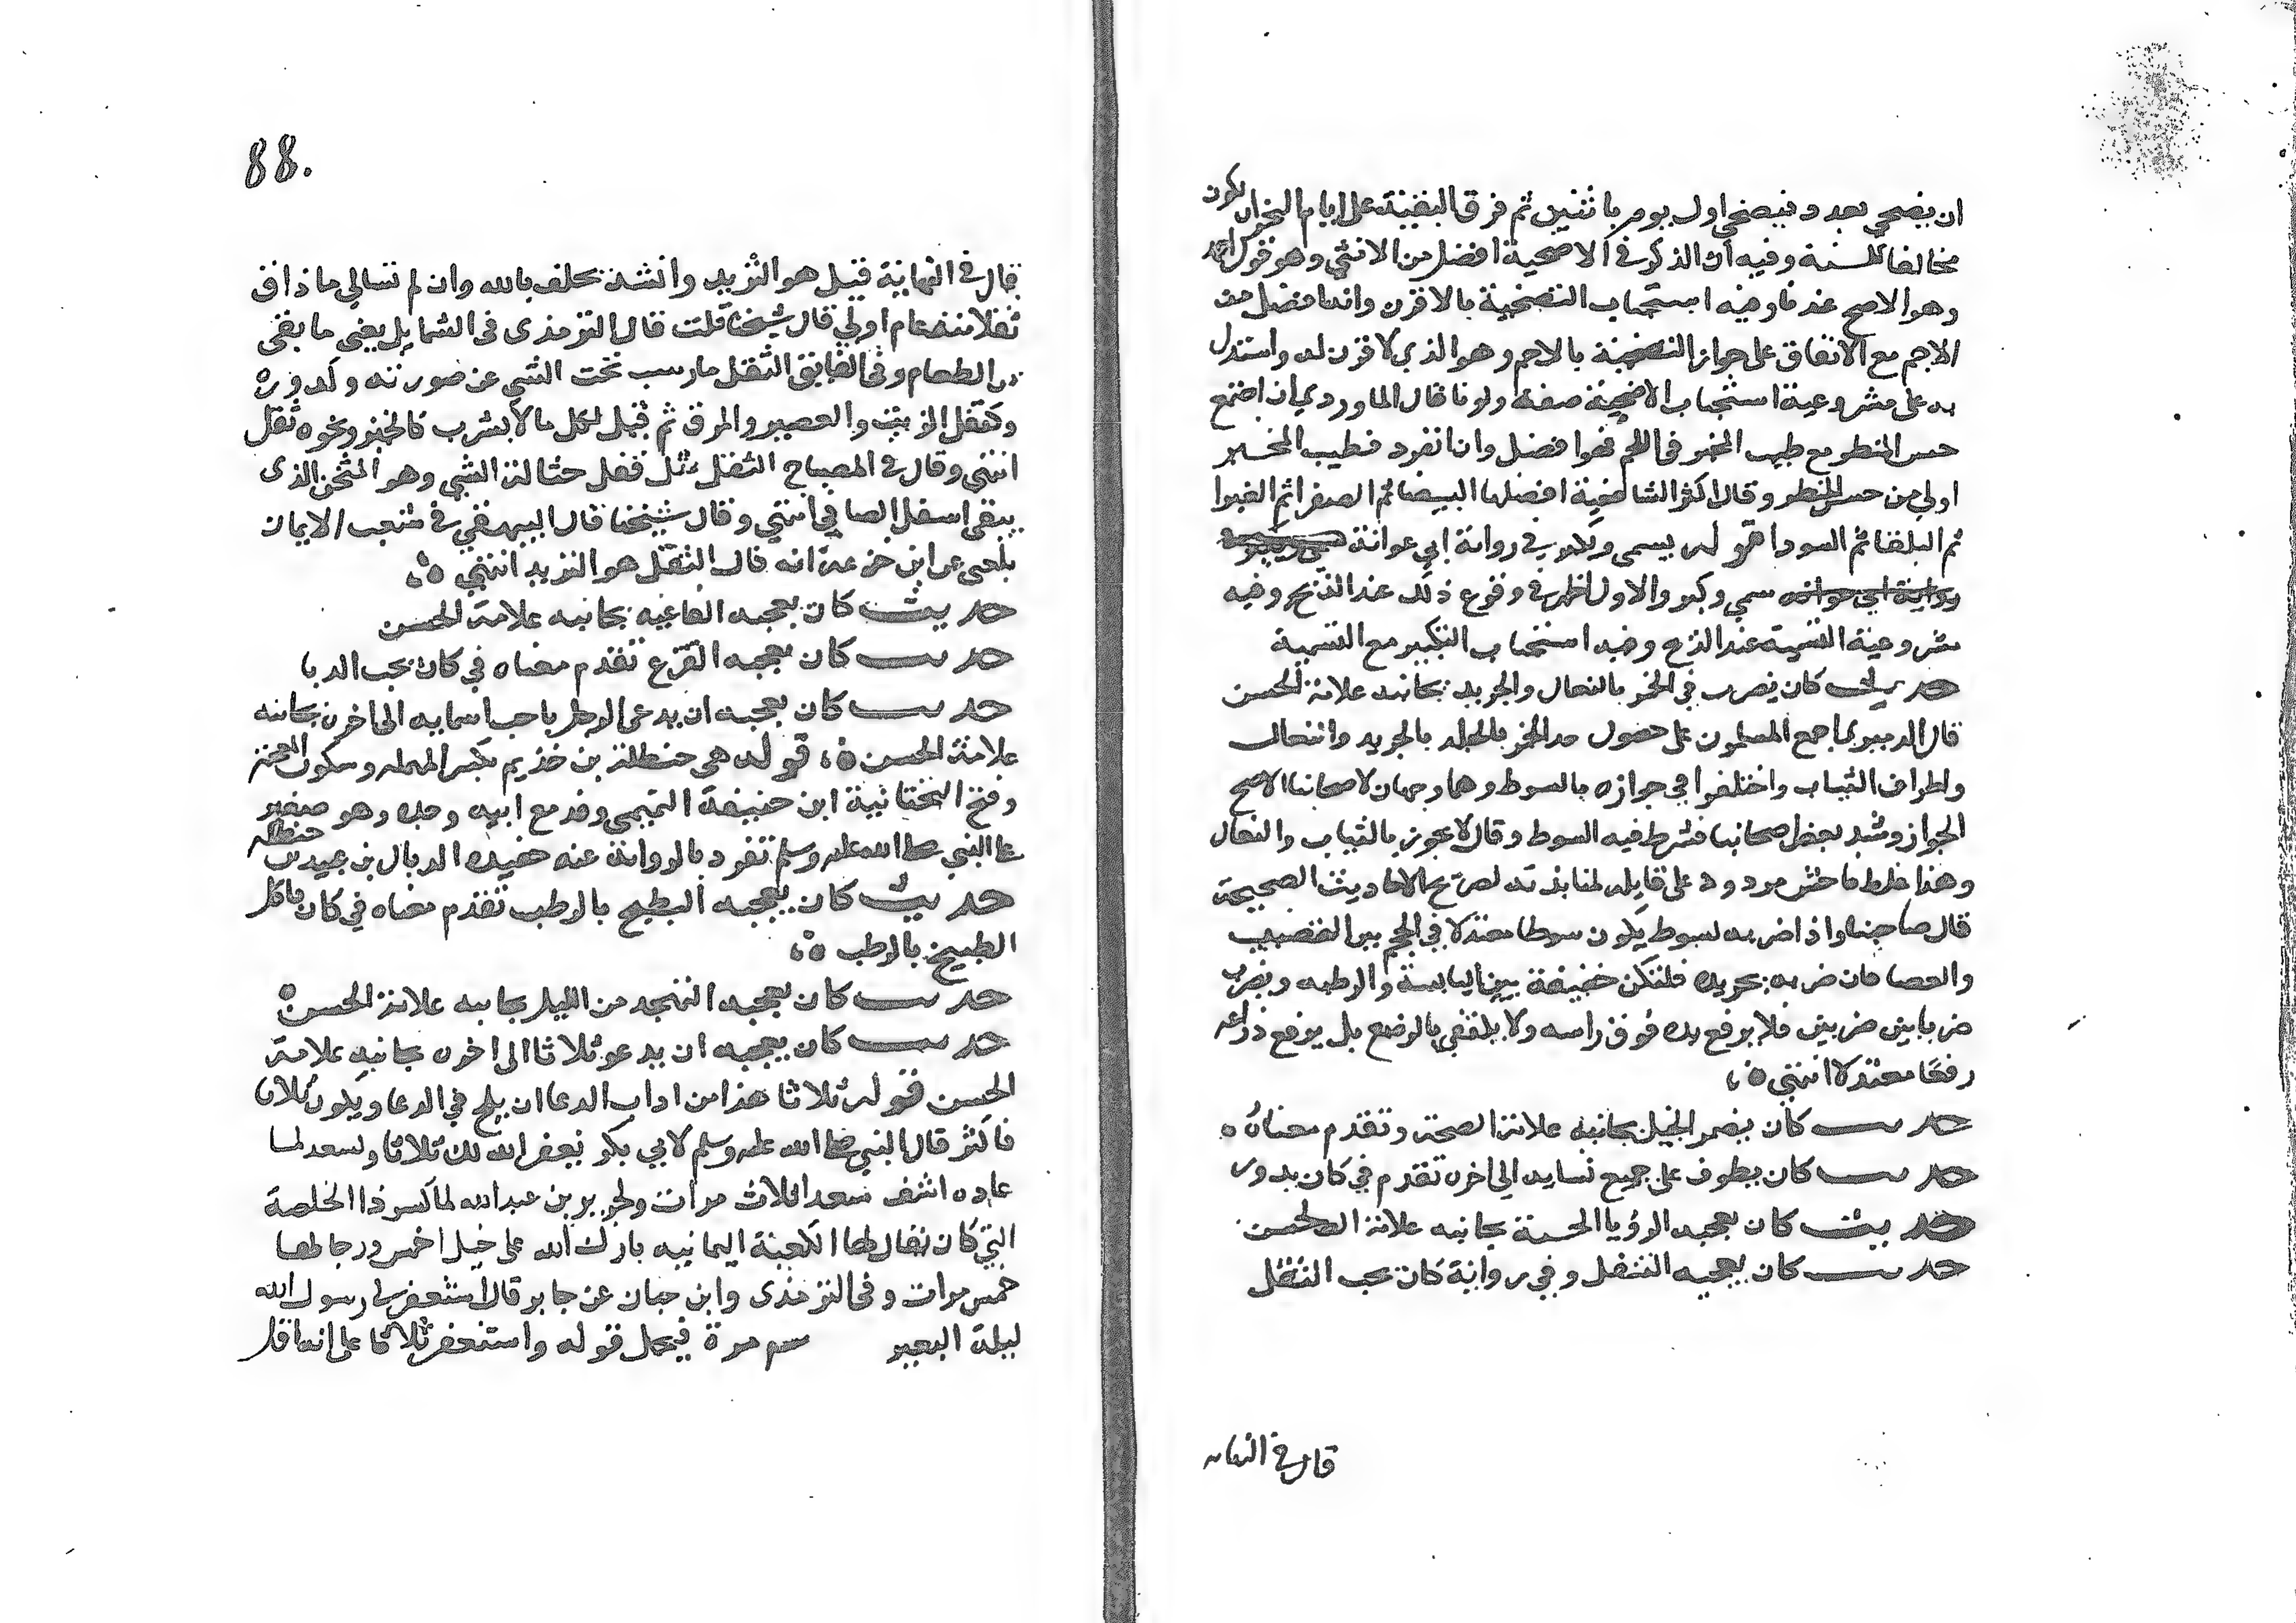 ان يضحي بعدد فيضحي اول يوم باثنين ثم فرق البقية على ايام النحر ان يكون
مخالفا للسنة وفيه ان الذكر في الاضحية افضل من الانثي وهو قول احمد
وهو الاصح عندنا وفيه استحباب التضحية بالاقرن وانها فضل من
الاجم مع الاتفاق على جواز التضحية بالاجم وهو الذي لا قرن له واستدل
به على مشروعية استحباب الاضحية صفة ولونا قال الماوردي ان اجتمع
حسن المنظر مع طيب المخبر في اللحم فهوا فضل وان انفرد فطيب المخبر
اولى من حسن المنظر وقال اكثر الشافعية افضلها البيضا ثم الصفرا ثم الغبرا
ثم البلقا ثم السودا قوله يسمى ويكبر في رواية ابي عوانة
سمي وكبر والاول اظهر في وقوع ذلك عند الذبح وفيه
مشروعية التسمية عند الذبح وفيه استحباب التكبير مع التسمية
حديث كان يضرب في الخمر بالنعال والجريد بجانبه علامة الحسن
قال الدميري اجمع المسلمون على حصول حد الخمر بالجلد بالجريد والنعال
واطراف الثياب واختلفوا في جوازه بالسوط وهما وجهان لاصحابنا الاصح
الجواز وشذ بعض اصحابنا فشرط فيه السوط وقال لا يجوز بالثياب والنعال
وهذا غلط فاحش مردود على قايله لمنابذته لصريح الاحاديث الصحيحة
قال صاحبنا واذا ضربه بسوط يكون سوطا معتدلا في الحجم بين القضيب
والعصا فان ضربه بجريده فلتكن خفيفة بين اليابسة والرطبه ويضرب
ضربا بين ضربين فلا يرفع يده فوق راسه ولا يكتفي بالوضع بل يرفع ذراعه
رفعا معتدلا انتهي ه،
حديث كان يضمر الخيل بجانبه علامة الصحة وتقدم معناه ه
حديث كان يطوف على جميع نسايه الى اخره تقدم في كان يدور
حديث كان يعجبه الرؤيا الحسنة بجانبه علامة الحسن
حديث كان يعجبه الثفل وفي رواية كان يحب الثفل
قال في النهايه
88.
قال في النهاية قيل هو الثريد وانشد يحلف بالله وان لم تسالي ما ذاق
ثفلا منذ عام اولي قال شيخنا قلت قال الترمذى فى الشمايل يعني ما بقى
من الطعام وفى الفايق الثفل ما رسب تحت الشي عن صورته وكدوره
وكثفل الزيت والعصير والمرق ثم قيل لكل ما لا يشرب كالخبز ونحوه ثفل
انتهي وقال في المصباح الثفل مثل قفل حثالة الشي وهو الثخن الذى
يبقى اسفل الصافي انتهي وقال شيخنا قال البيهقي في شعب الايمان
بلغني عن ابن خزيمة انه قال الثفل هو الثريد انتهي ه،
حديث كان يعجبه الفاغيه بجانبه علامة الحسن
حديث كان يعجبه القرع تقدم معناه في كان يحب الدبا
حديث كان يعجبه ان يدعى الرجل باحب اسمايه الى اخره بجانبه
علامة الحسن ه، قوله هي حنظلة بن حذيم بكسر المهملة وسكون المعجمة
وفتح التحتانية ابن حنيفة التميمى وفد مع ابيه وجده وهو صغير
على النبي صلى الله عليه وسلم تفرد بالرواية عنه حفيده الذيال بن عبيد بن حنظله
حديث كان يعجبه البطيخ بالرطب تقدم معناه في كان ياكل
الطبيخ بالرطب ه،
حديث كان يعجبه التهجد من الليل بجانبه علامة الحسن ه
حديث كان يعجبه ان يدعو ثلاثا الى اخره بجانبه علامة
الحسن قوله ثلاثا هذا من اداب الدعا ان يلح في الدعا ويكون ثلاثا
فاكثر قال النبي صلى الله عليه وسلم لابي بكر يغفر الله لك ثلاثا ولسعد لما
عاده اشف سعدا ثلاث مرات ولجرير بن عبد الله لما كسر ذا الخلصة
التي كان يقال لها الكعبة اليمانيه بارك الله على خيل احمس ورجالها
خمس مرات وفى الترمذى وابن حبان عن جابر قال استغفر لي رسول الله
ليلة البعير مرة فيحمل قوله واستغفر ثلاثا على انها اقل